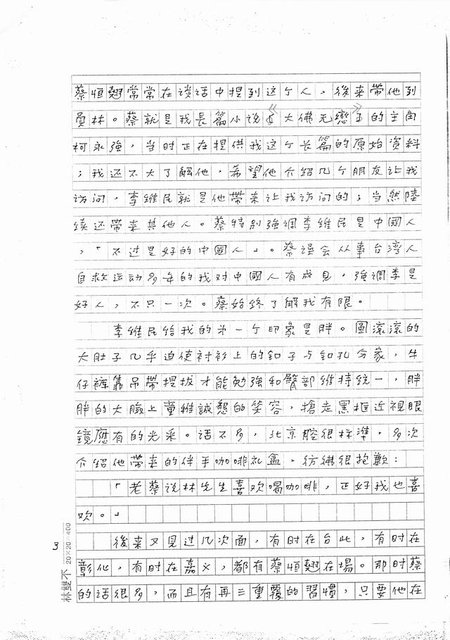 蔡恒翹常常在談話中提到这个人,後來帶他到
員林。蔡就是我長篇小說《大佛无恋》的主角
柯永強,当時正在提供我这个長篇的原始資料
;我还不大了解他,希望他介紹几个朋友让我
訪问,李維民就是他帶來让我訪问的;当然陸
续还帶來其他人。蔡特别強調李維民是中國人
,「不过是好的中國人」。蔡誤会从事台湾人
自救运动多年的我对中國人有成見,強調李是
好人,不只一次。蔡始終了解我有限。
李維民给我的第一个印象是胖。圆滚滚的
大肚子几乎迫使衬衫上的釦子与釦孔分家,牛
仔褲靠吊帶提拔才能勉強和臀部維持統一,胖
胖的大臉上堂堆誠懇的笑容,搶走黑框近視眼
鏡應有的光采。话不多,北京腔很标準。多次
介紹他帶來的伴手咖啡礼盒,彷彿很抱歉:
「老蔡說林先生喜欢喝咖啡,正好我也喜
欢。」
後來又見过几次面,有時在台北,有時在
彰化,有時在嘉义,都有蔡恒翹在場。那时蔡
的话很多,而且有再三重覆的習慣,只要他在
3
林雙不
20×20=400